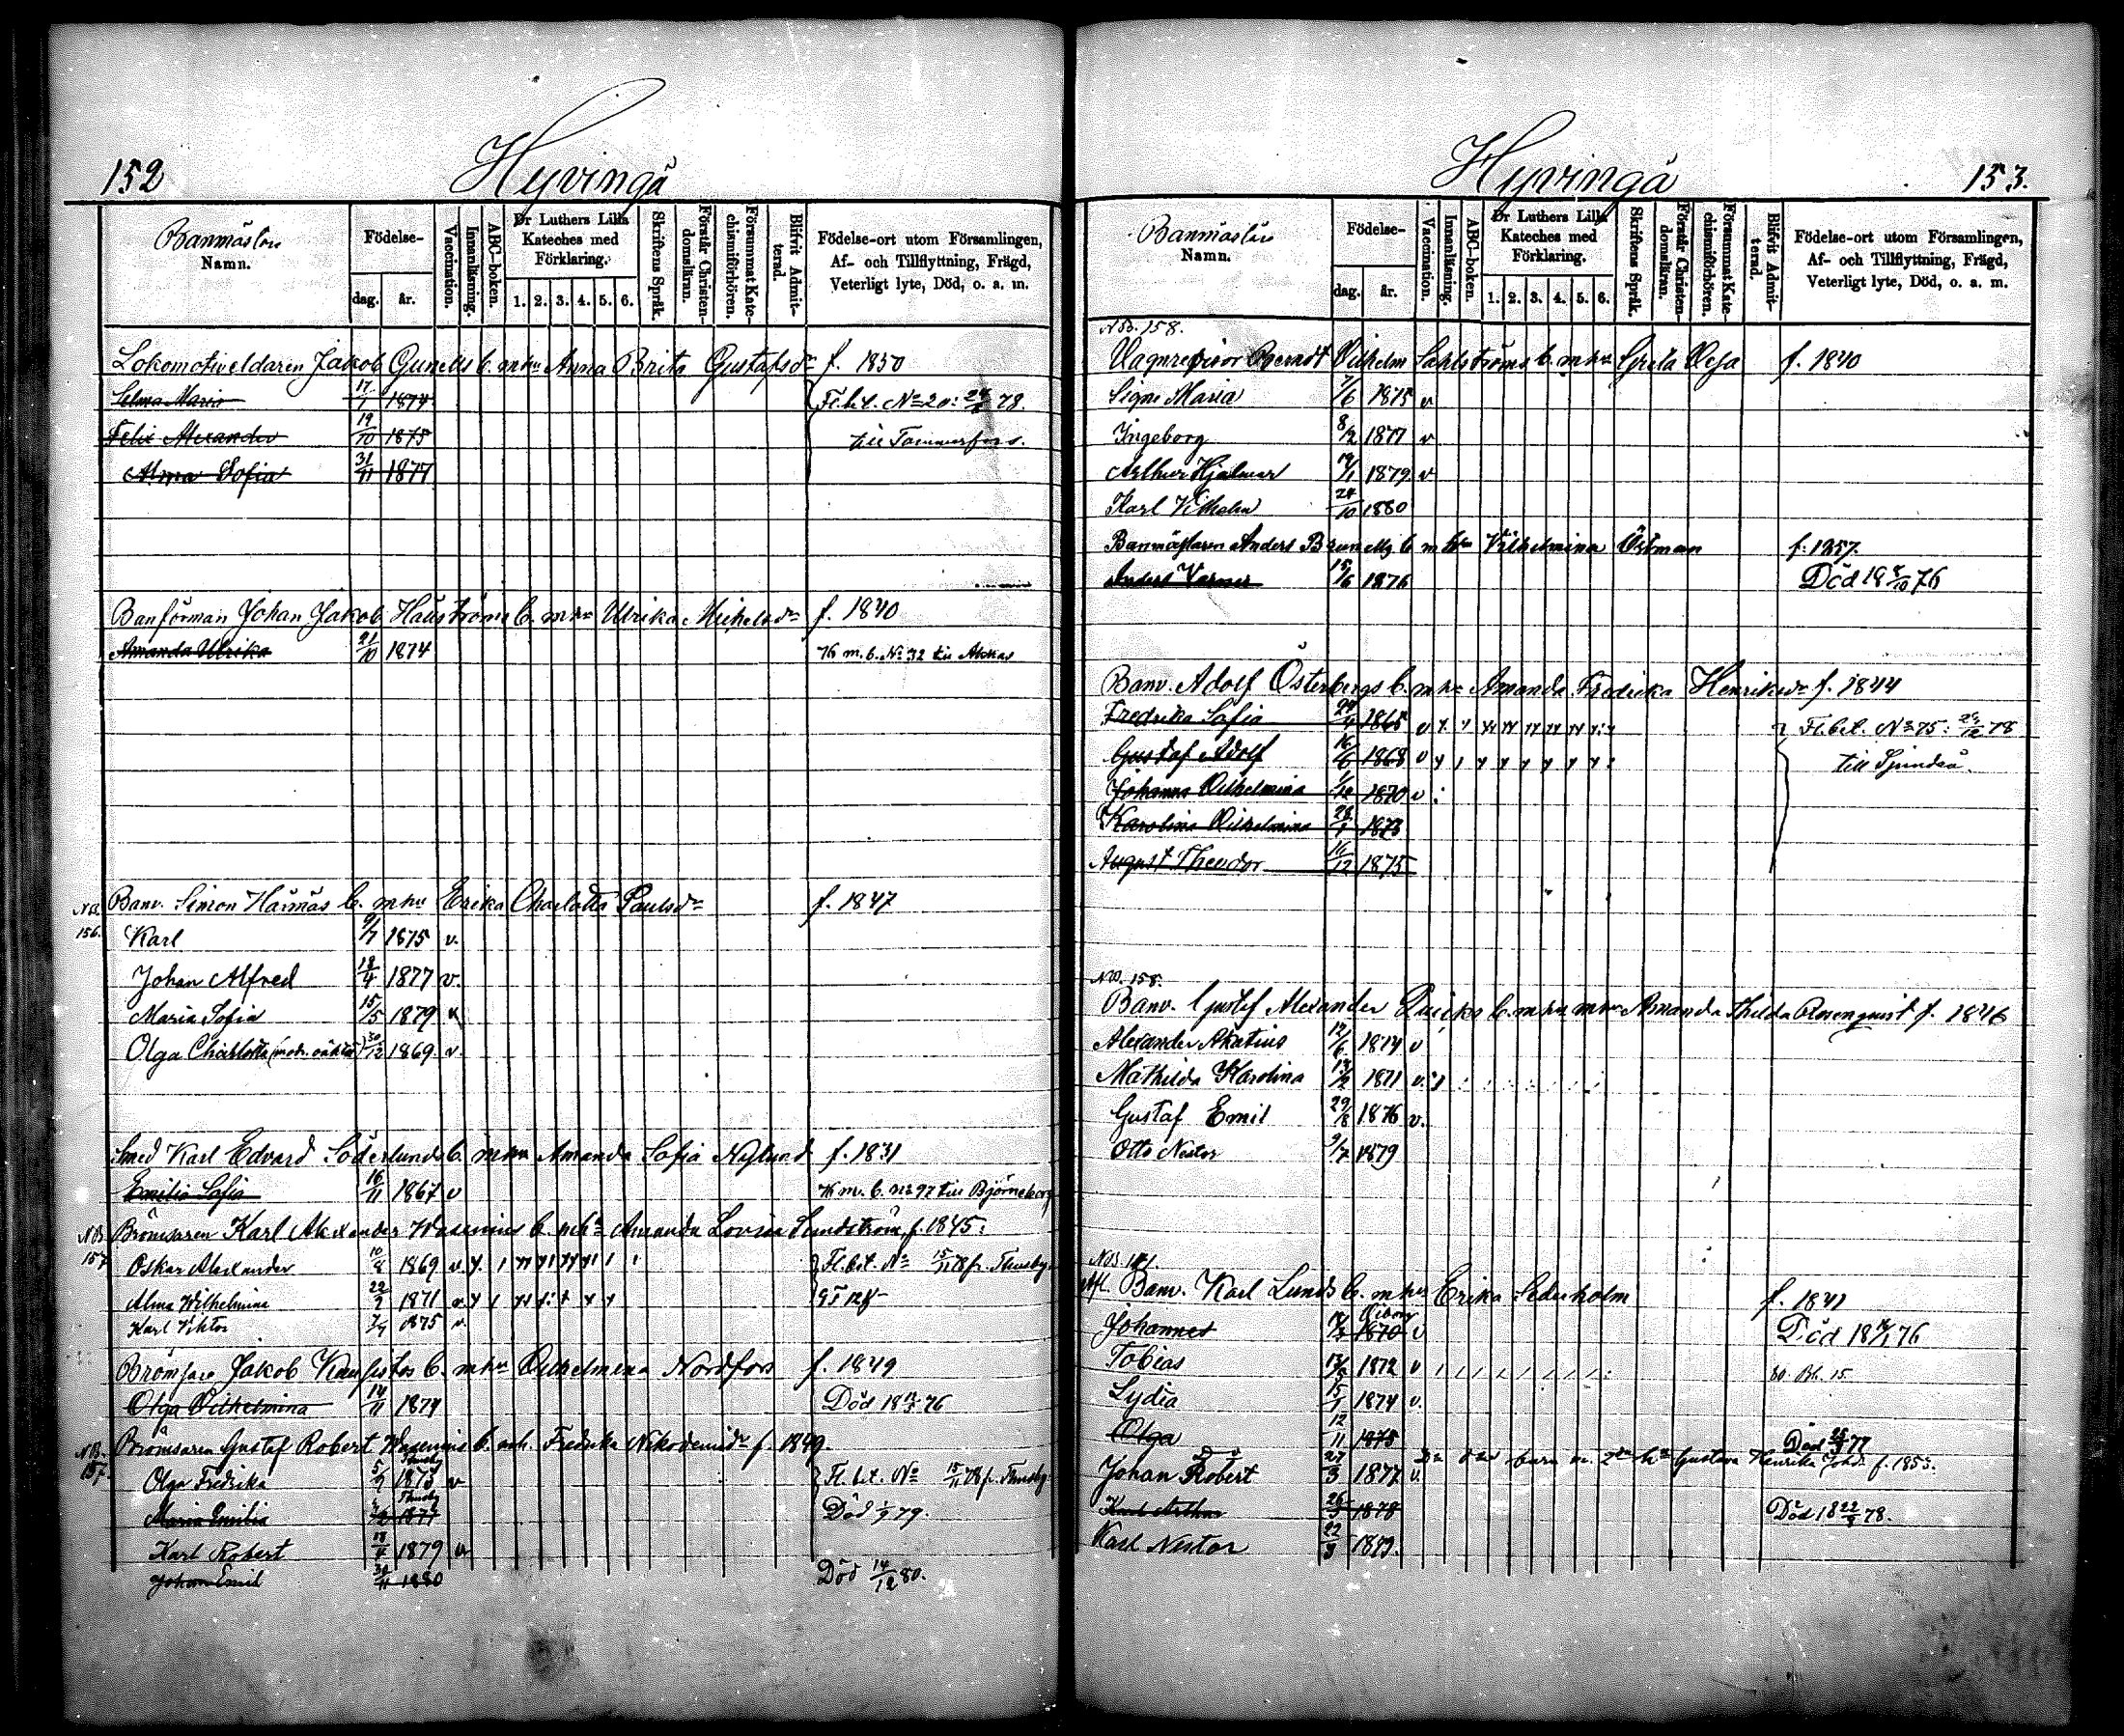 152
Hyvingå
Banmästare
Namn.
Födelse-
dag. år.
Vaccination.
Innanläsning.
ABC-boken.
Dr Luthers Lilla Kateches med Förklaring.
1. 2. 3. 4. 5. 6.
Skriftens Språk.
Förstår Christen-domsläran.
Försummat Kate-chismiförhören.
Blifvit Admit-terad.
Födelse-ort utom Församlingen, Af- och Tillflyttning, Frägd, Veterligt lyte, Död, o. a. m.
Lokomotiveldaren Jakob Gunells b. m hu Anna Brita Gustafsdr f. 1850
Selma Maria 17/7 1874 Fl. bet. No 20: 78.
Felix Alexander 19/10 1875 till Tammerfors.
Alma Sofia 31/11 1877
Banförman Johan Jakob b. m hu Ulrika Michelsdr f. 1840
Amanda Ulrika 21/10 1874 76 m. b. No 32 till
NB. 156. Banv. Simon b. m hu Erika Charlotta Paulsdr f. 1847
Karl 9/7 1875 v.
Johan Alfred 18/4 1877 v.
Maria Sofia 15/5 1879 v
Olga Charlotta (mdr. oäkta) 30/12 1869. v.
Smed Karl Edvard Söderlunds b. m hu Amanda Sofia Nylund f. 1831
Emilia Sofia 16/11 1867 v 76 m. b. no 97 till Björneborg
NB 157 Bromsaren Karl Alexander Wasenius b. m hu Amanda Lovisa Sundström, f. 1845.
Oskar Alexander 10/8 1869 v. Fl. bet. No 15/11 78 fr. Thusby.
Alma Wilhelmina 22/9 1871 v
Karl Viktor 7/7 1875 v.
Bromsare Jakob b. m hu Vilhelmina Nordfors f. 1849
Olga Vilhelmina 14/11 1874 Död 76
NB. 157. Bromsaren Gustaf Robert Wasenius b. m h. Fredrika Nikodemidr f. 1849.
Olga Fredrika 5/9 Thusby 1873 v Fl. bet. No 15/11 78 fr. Thusby
Maria Emilia Thusby 1877 Död 79.
Karl Robert 1879 v
Johan Emil 30/11 1880 Död 14/12 80.
Hyvingå
153.
Banmästare
Namn.
Födelse-
dag. år.
Vaccination.
Innanläsning.
ABC-boken.
Dr Luthers Lilla Kateches med Förklaring.
1. 2. 3. 4. 5. 6.
Skriftens Språk.
Förstår Christen-domsläran.
Försummat Kate-chismiförhören.
Blifvit Admit-terad.
Födelse-ort utom Församlingen, Af- och Tillflyttning, Frägd, Veterligt lyte, Död, o. a. m.
NB. 158.
Vagnrevisor Berndt Vilhelm Sahlströms b. m hu Greta f. 1840
Signe Maria 7/6 1875 v
Ingeborg 8/2 1877 v
Arthur Hjalmar 19/1 1879. v
Karl Vilhelm 24/10 1880
Banmästaren Anders b m hu Vilhelmina Östman f. 1857.
Anders Verner 15/6 1876 Död 18 8/10 76
Banv. Adolf Österbergs b. m hu Amanda Fredrika Henriksdr f. 1844
Fredrika Sofia 24/4 1865 v Fl. bet. No 75: 78
Gustaf Adolf 16/6 1868 v till Sjundeå.
Johanna Vilhelmina 1870 v
Karolina Vilhelmina 28/1 1873
August Theodor 16/12 1875
NB. 158.
Banv. Gustaf Alexander b. m hu Amanda Thilda Rosenqvist f. 1846
Alexander Akatius 12/6 1874 v
Mathilda Karolina 1871 v.
Gustaf Emil 29/8 1876 v.
Otto Nestor 9/7 1879
NB. 141
Afl. Banv. Karl Lunds b. m hu Erika Sederholm f. 1841
Johannes Viborg 1870 v Död 76
Tobias 13/8 1872 v 80. Bl. 15.
Lydia 15/1 1874 v.
Olga 12/11 1875 Död 77
Johan Robert 27/3 1877 v. barn m. 2dra hu Gustava Henrika f. 1853.
Karl Arthur 26/3 1878 Död 18 22/8 78.
Karl Nestor 22/3